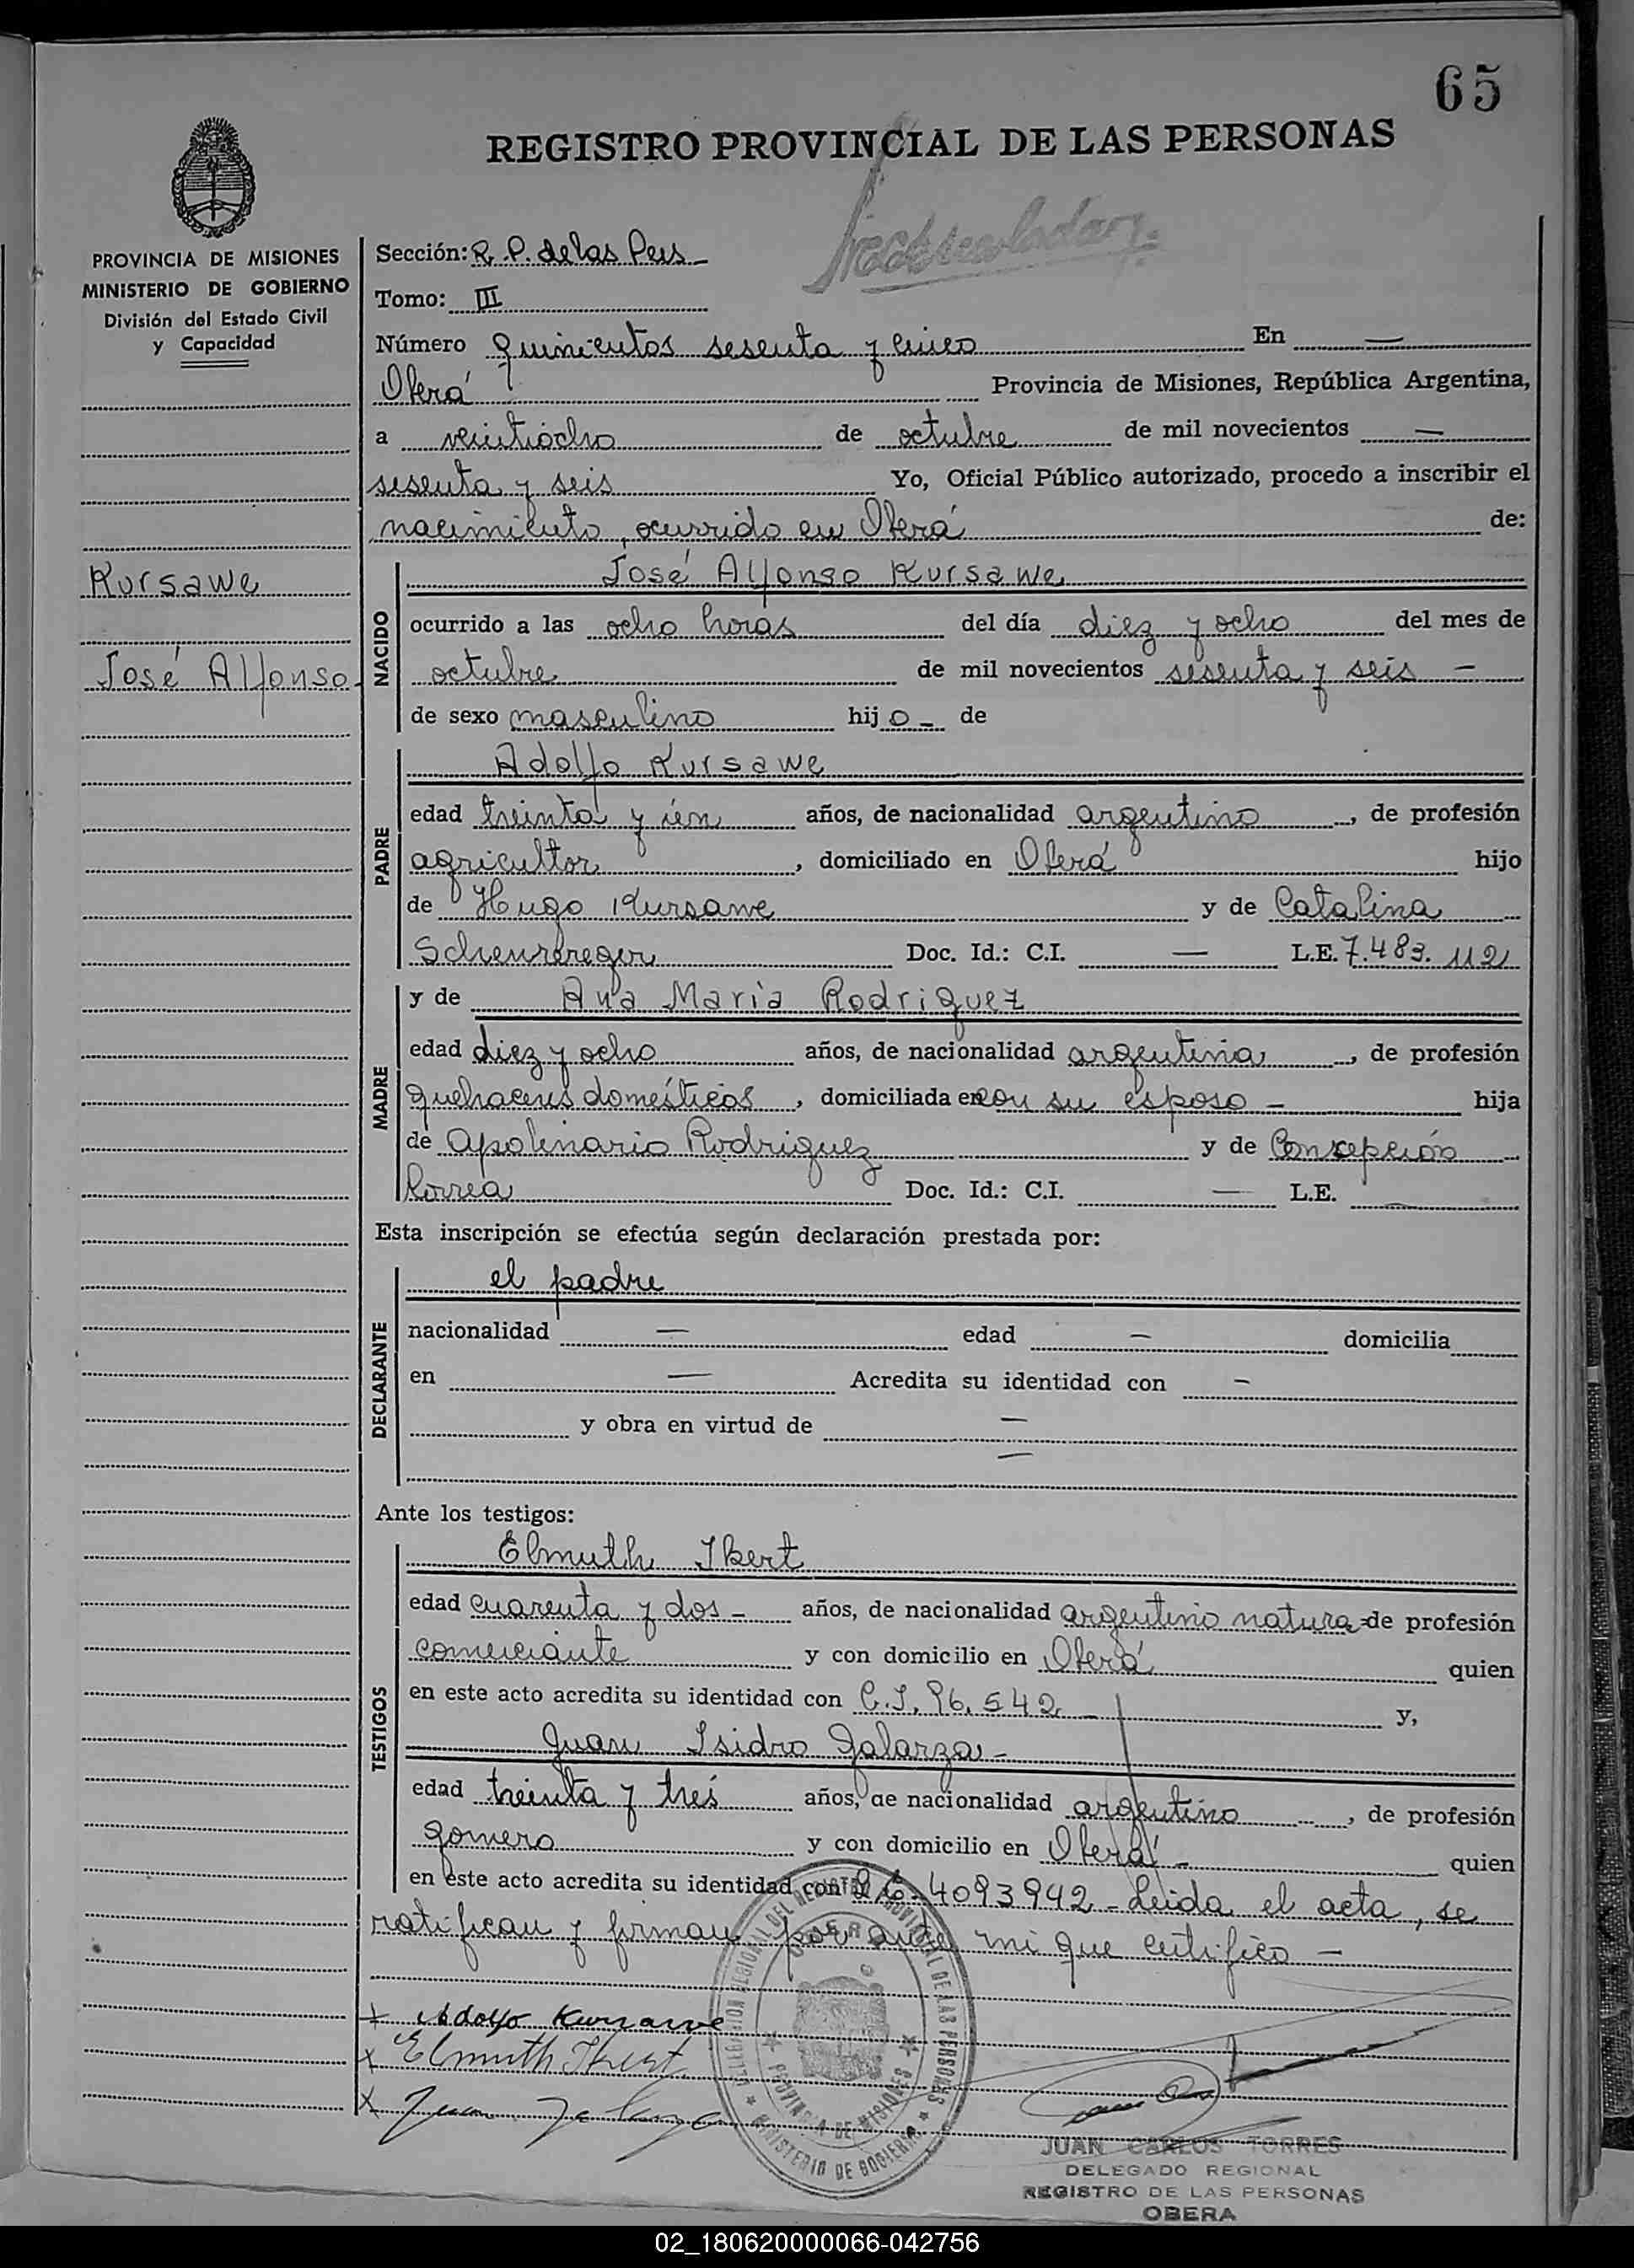 65
REGISTRO PROVINCIAL DE LAS PERSONAS
PROVINCIA DE MISIONES
MINISTERIO DE GOBIERNO
División del Estado Civil
y Capacidad
Kursawe
José Alfonso
Sección: R. P. de las Pers
Tomo: III
Número quinientos sesenta y cinco En —
Oberá Provincia de Misiones, República Argentina,
a veintiocho de octubre de mil novecientos —
sesenta y seis Yo, Oficial Público autorizado, procedo a inscribir el
nacimiento, ocurrido en Oberá de:
NACIDO
José Alfonso Kursawe
ocurrido a las ocho horas del día diez y ocho del mes de
octubre de mil novecientos sesenta y seis —
de sexo masculino hijo — de
PADRE
Adolfo Kursawe
edad treinta y un años, de nacionalidad argentino, de profesión
agricultor, domiciliado en Oberá hijo
de Hugo Kursawe y de Catalina
Doc. Id.: C.I. — L.E. 7.483.112
MADRE
y de Ana María Rodriguez
edad diez y ocho años, de nacionalidad argentina, de profesión
quehaceres domésticos, domiciliada en con su esposo — hija
de Apolinario Rodriguez y de Concepción
Correa Doc. Id.: C.I. — L.E. —
Esta inscripción se efectúa según declaración prestada por:
DECLARANTE
el padre
nacionalidad — edad — domicilia
en — Acredita su identidad con —
y obra en virtud de —
—
Ante los testigos:
TESTIGOS
Elmuth Ikert
edad cuarenta y dos — años, de nacionalidad argentino natura de profesión
comerciante y con domicilio en Oberá quien
en este acto acredita su identidad con C.I. 96.542 — y,
Juan Isidro Galarza —
edad treinta y tres años, de nacionalidad argentino, de profesión
gomero y con domicilio en Oberá — quien
en este acto acredita su identidad con 4093942 — Leida el acta, se
ratifican y firman por ante mi que certifico —
x Adolfo Kursawe
x Elmuth Ikert
x Juan Galarza
DELEGACION REGIONAL DEL REGISTRO PROVINCIAL DE LAS PERSONAS
OBERA
PROVINCIA DE MISIONES
MINISTERIO DE GOBIERNO
JUAN CARLOS TORRES
DELEGADO REGIONAL
REGISTRO DE LAS PERSONAS
OBERA
02_180620000066-042756